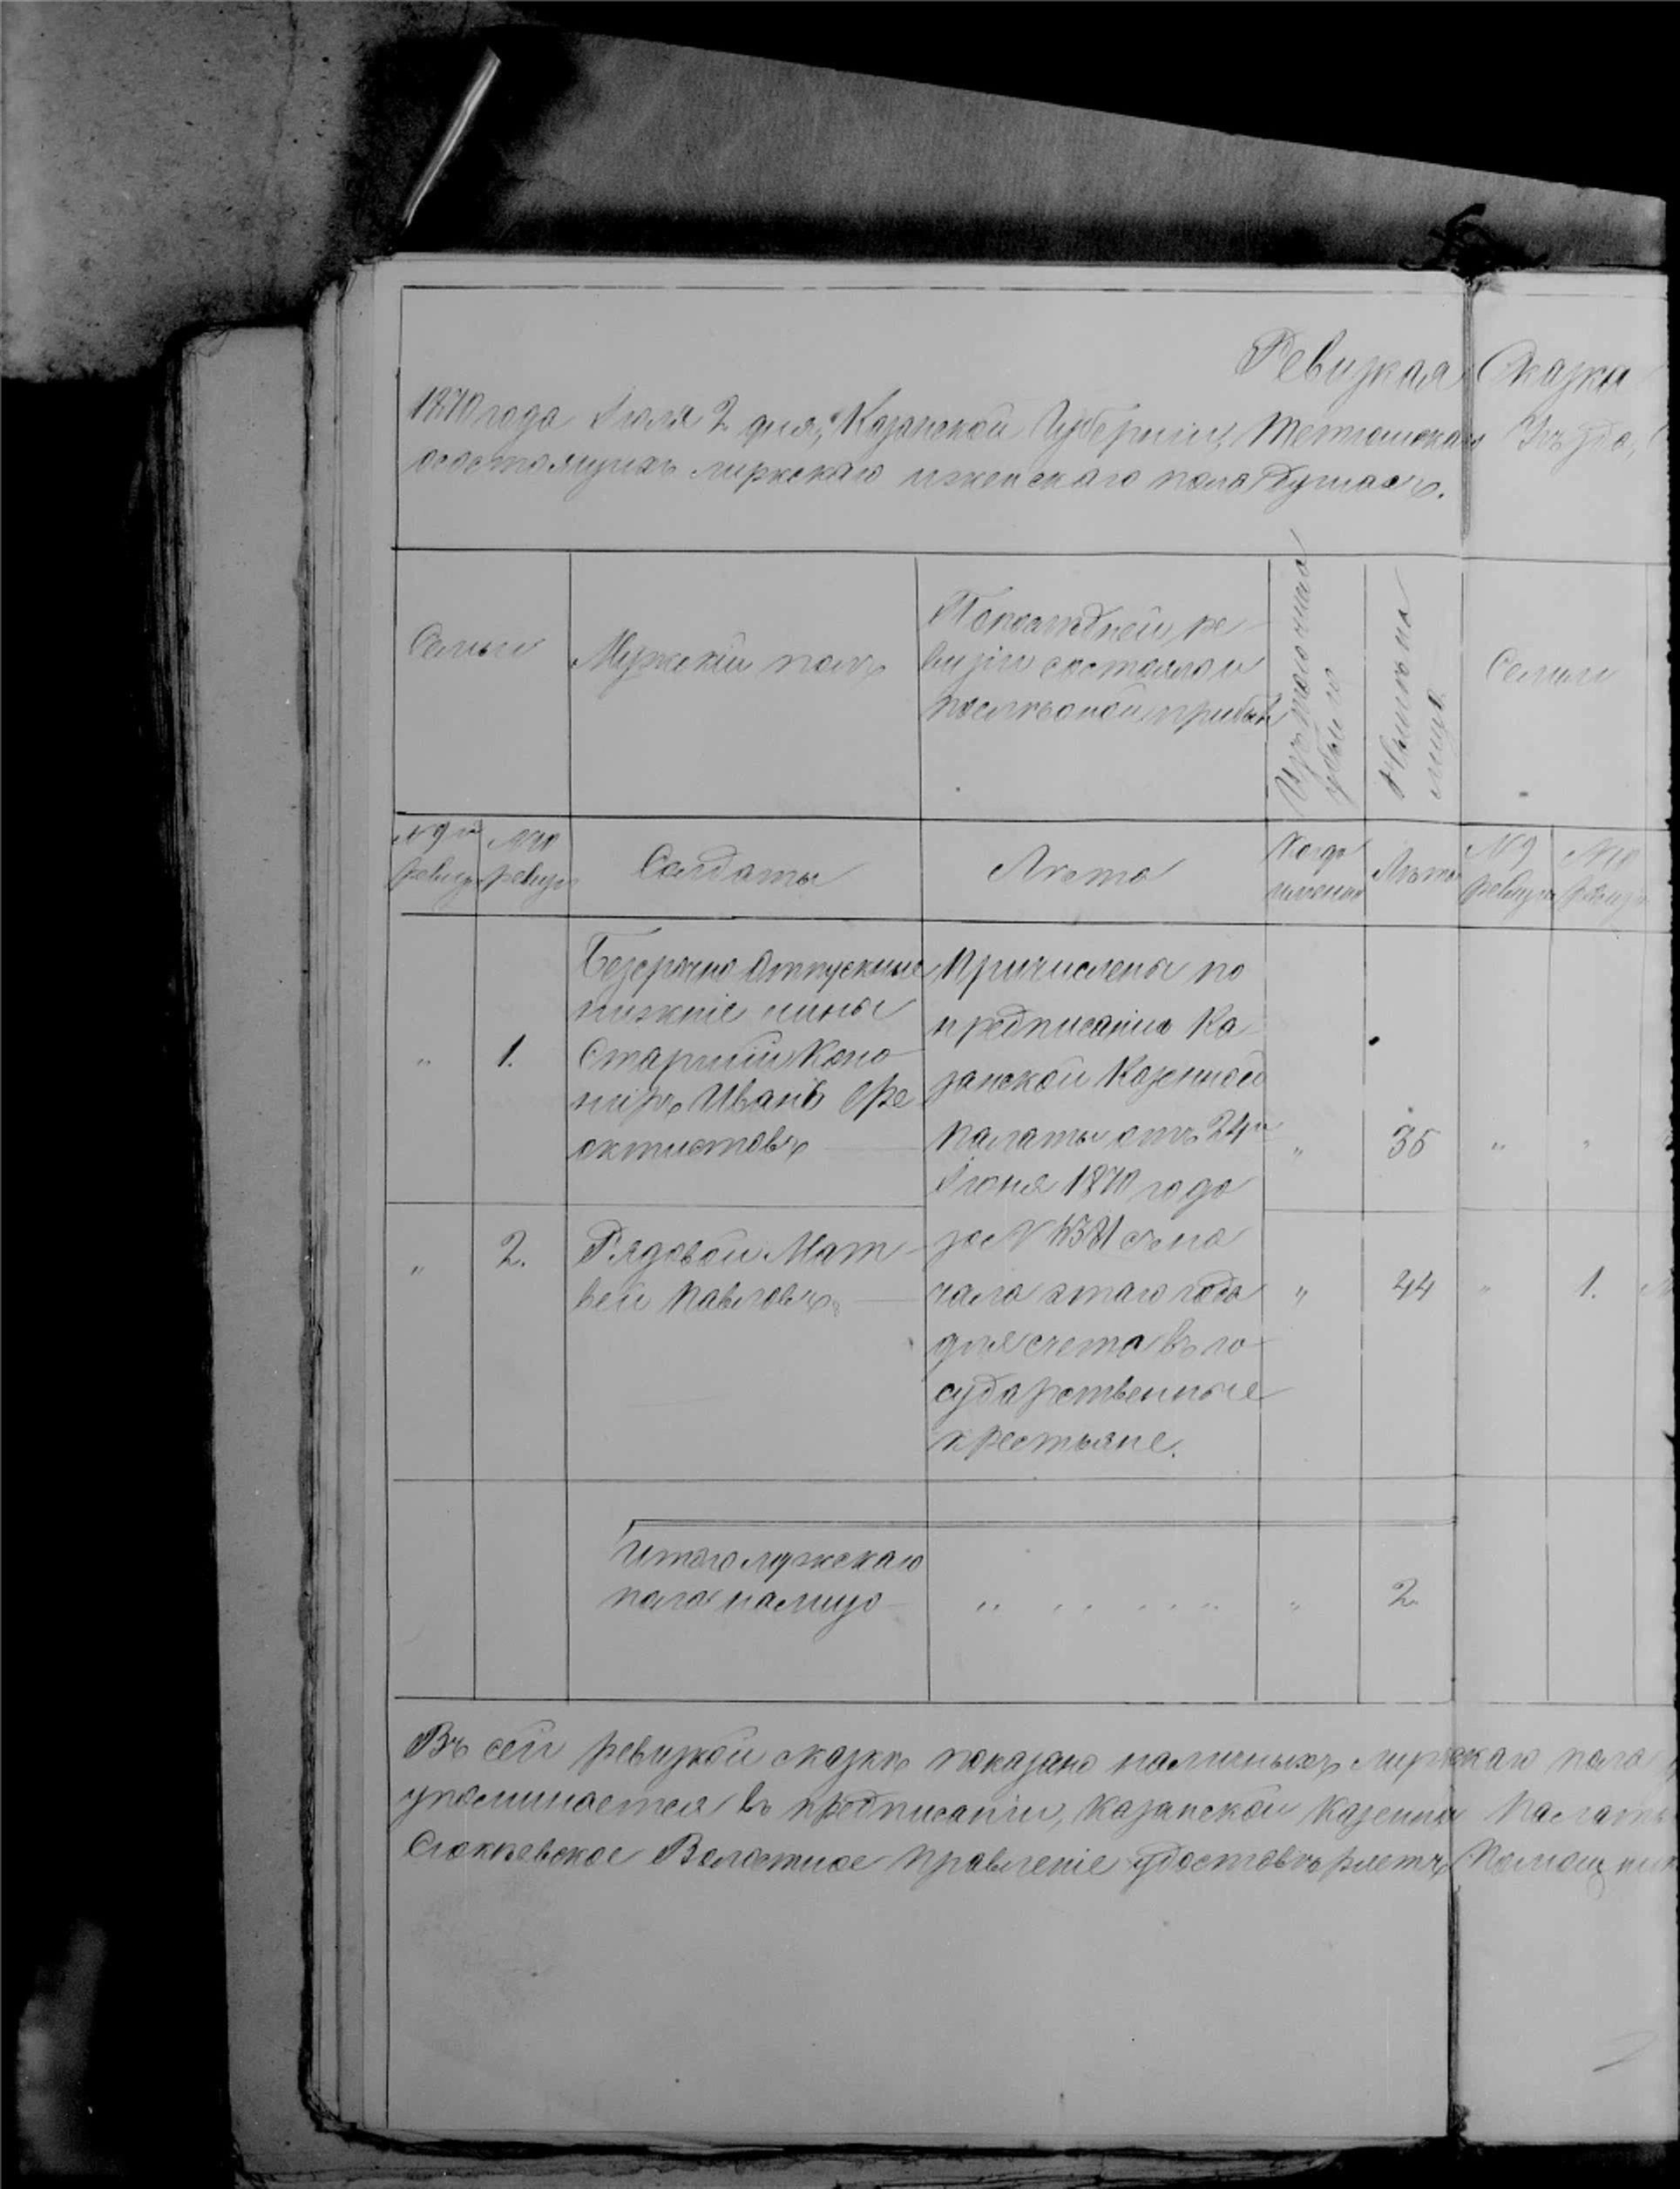 Ревизкая Сказка
1870 года Июля 2 дня, Казанской Губерніи, Тетюшскаго Уѣзда,
осостоящихъ мужскаго иженскаго пола Душахъ.
Семьи
Мужскій полъ
Попослѣдней ре-
визіи состояло и
послѣ оной прибыло
Изъ того числа
убыло
Нынѣ на
лицо
Семьи
№ 9й
ревиз
№ 10
ревиз
Солдаты
Лѣта
Когда
именно
Лѣта
№ 9
ревизіи
№ 10
ревизіи
Безсрочно Отпускные
нижніе чины
„ 1. Старшій Кано-
ниръ Иванъ Фе
октистовъ
Причислены по
предписанію Ка
занской Казенной
Палаты отъ 24го
Іюня 1870 года
за № 4581 съ на
чала этаго года
для счета въ го-
сударственные
крестьяне.
„ 35 „ „
„ 2. Рядовой Мат-
вей Павловъ
„ 44 „ 1.
Итого мужскаго
пола налицо „ „ 2.
Въ сей ревизкой сказкѣ показано наличныхъ мужскаго пола
упоминается въ предписаніи, Казанской Казенной Палаты
Сюкеевское Волостное Правленіе удостовѣряетъ, Помощник